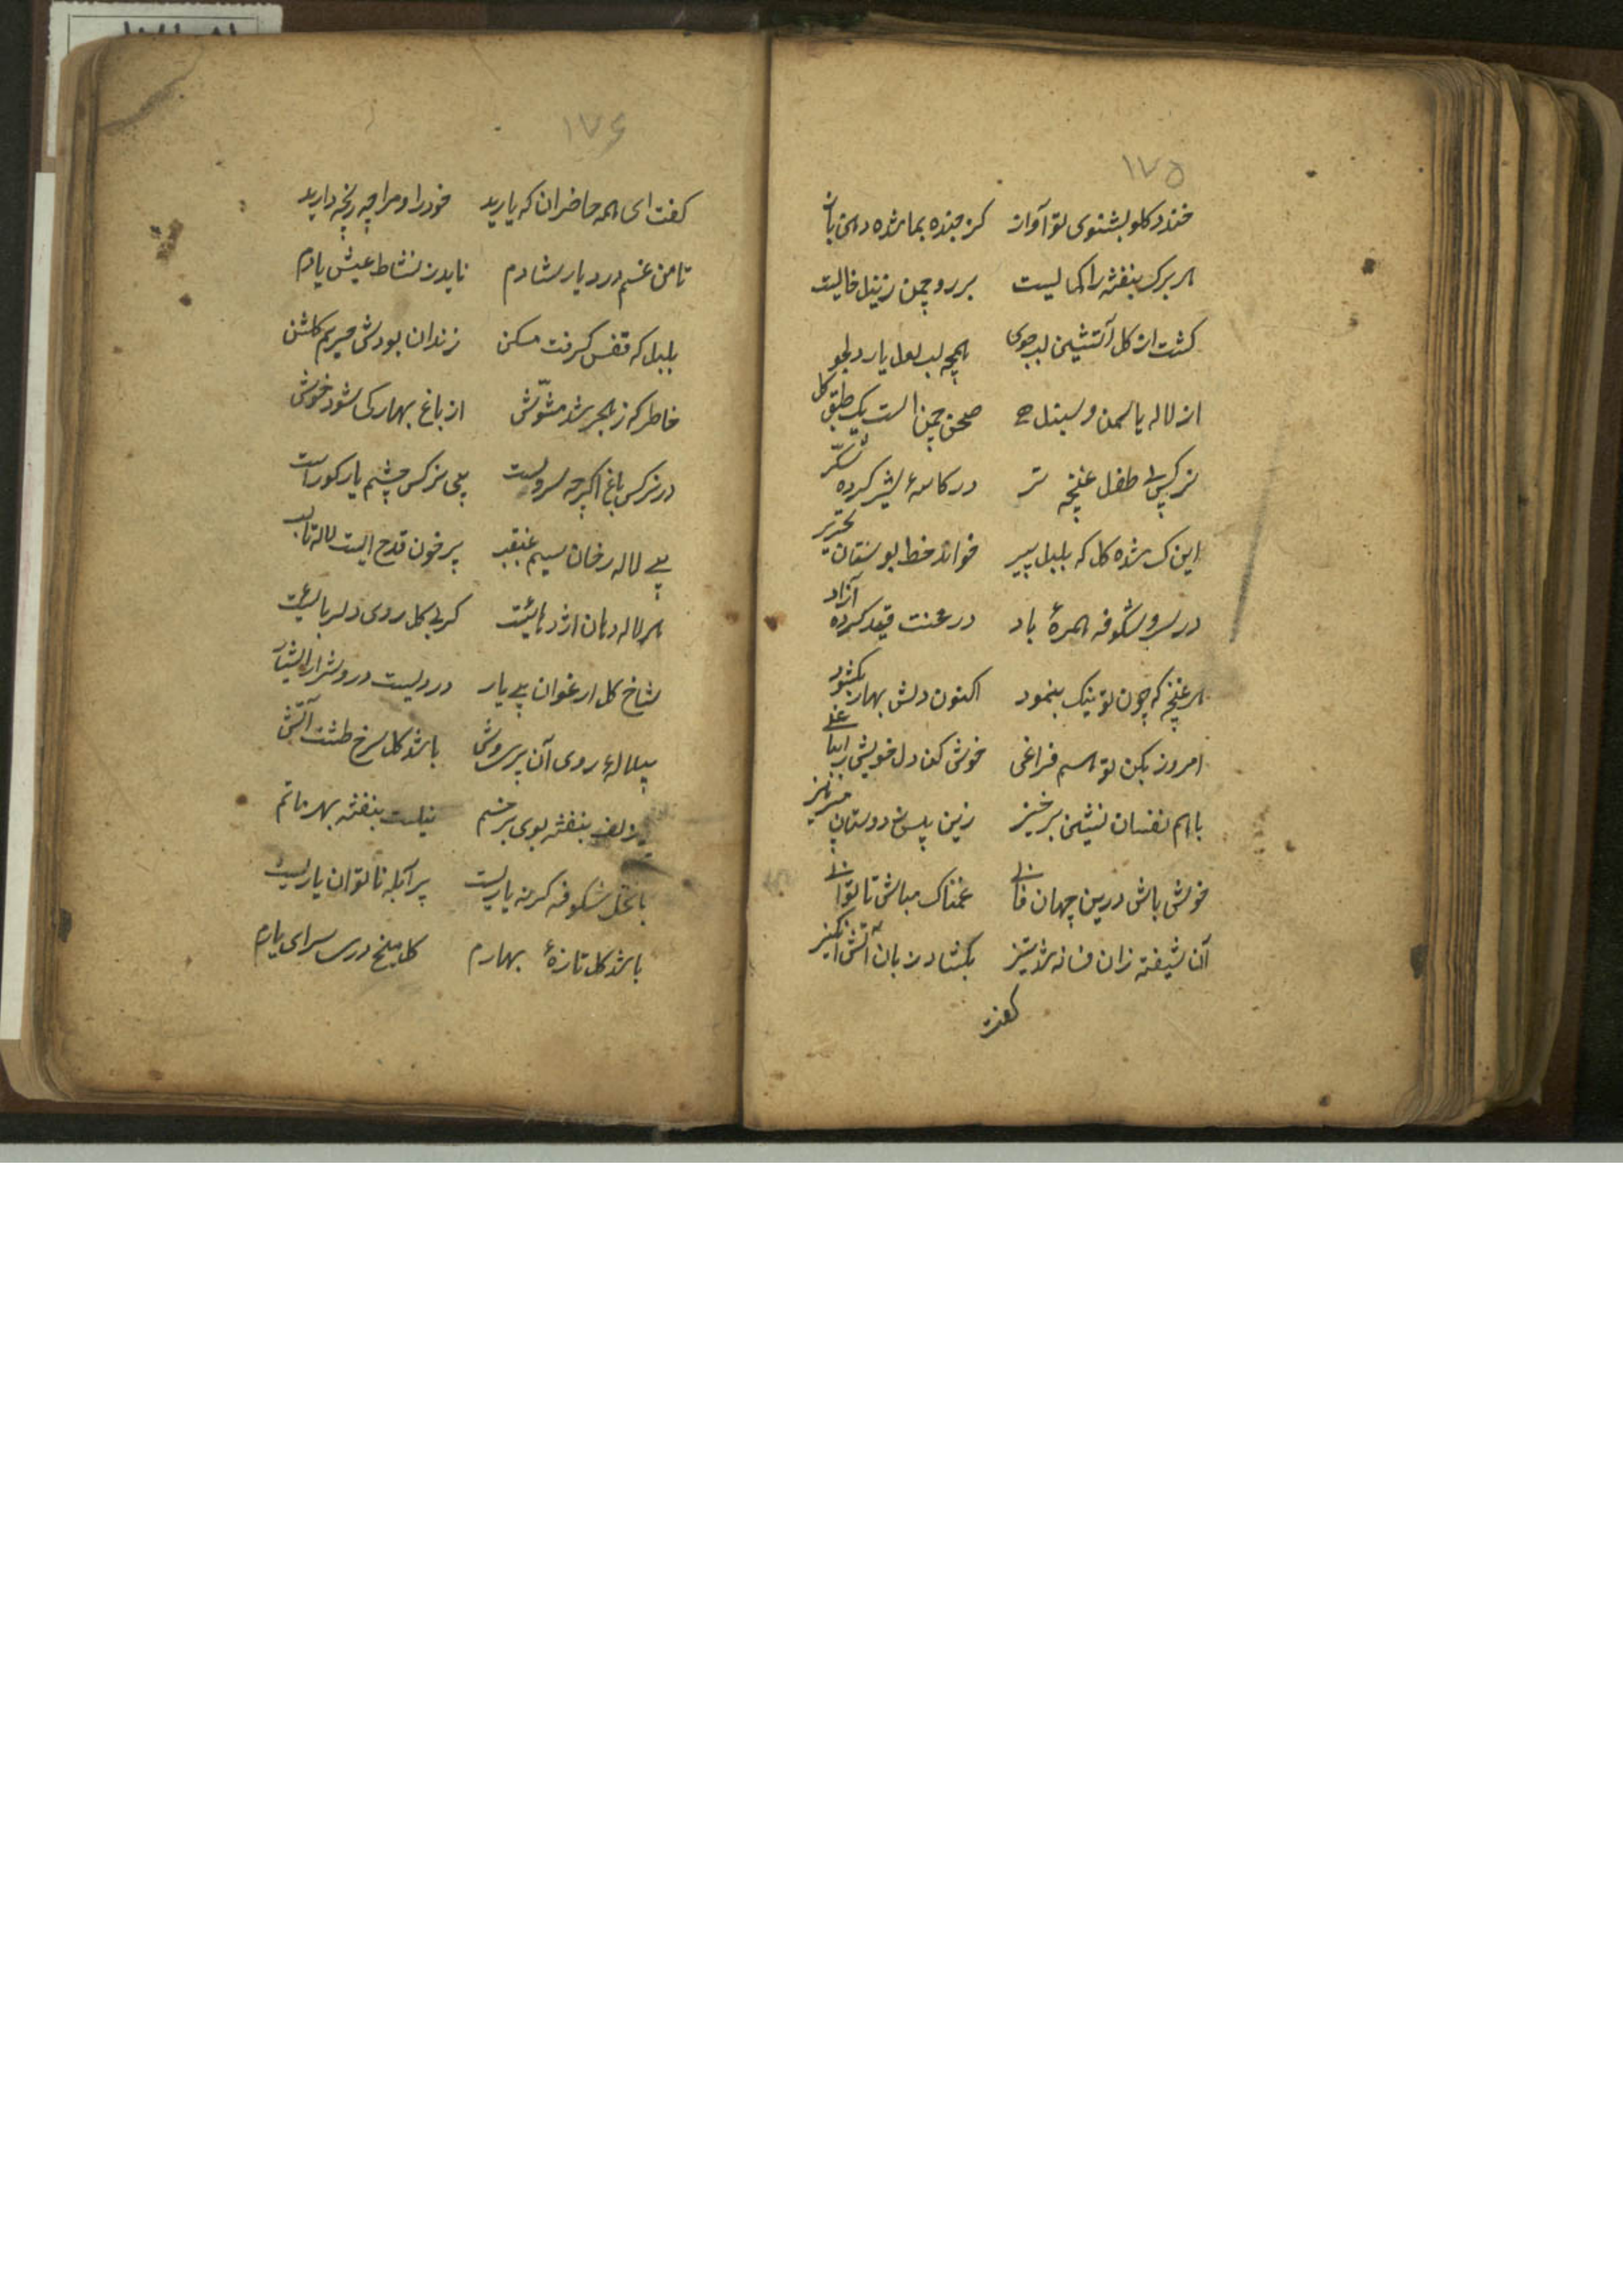 ۱۷۵
خندد کلو بشنوی تو آواز کز خنده بماندّه دهن باز
هر برک بنفشه را کی لیست بر رو چمن ز نیل خالیست
کشت از کل آتشین لب جوی همچه لب لعل یار دلجو
از لاله یاسمن و سنبل صحن چمن است یک طبق کل
نرکس طفل غنچه تر در کاسهٔ شیر کرده شکّر
شده کل که بلبل پیر خواند خط بوستان تحریر
در سرو شکوفه همرهٔ باد در عنت قید کرده آزاد
هر غنچه که چون تو تنک بنمود اکنون دلش بهار بکشود
امروز بکن تو هم فراغی خوش کن دل خویش را بباغی
با هم نفسان نشین برخیز زین پس ز دوستان مپرهیز
خوش باش درین جهان فانی غمناک مباش تا توانی
آن شیفته زان فسانه شد تیز بکشاد زبان آتش انکیز
کفت
۱۷۶
کفت ای همه حاضران که یارید خود را و مرا چه رنجه دارید
تا من غم درد یار شادم ناید ز نشاط عیش یادم
بلبل که قفس کرفت مسکن زندان بودش حریم کلشن
خاطر که ز هجر شد مشوّش از باغ بهار کی شود خوش
در نرکس باغ اکرچه نوریست بی نرکس چشم یار کوراست
بی لاله رخان سیم غبغب پر خون قدح است لاله تا لب
هر لاله دهان اژدهائیست کر بی کل روی دلربائیست
شاخ کل ارغوان بی یار دودیست درو شرار بسیار
بی لالهٔ روی آن پریوش باشد کل سرخ طشت آتش
بی زلف بنفشه بوی پر خم نیلست بنفشه بهر ماتم
با نخل شکوفه کر نه یاریست پر آبله ناتوان یاریست
باشد کل تازهٔ بهارم کل میخ در سرای یارم